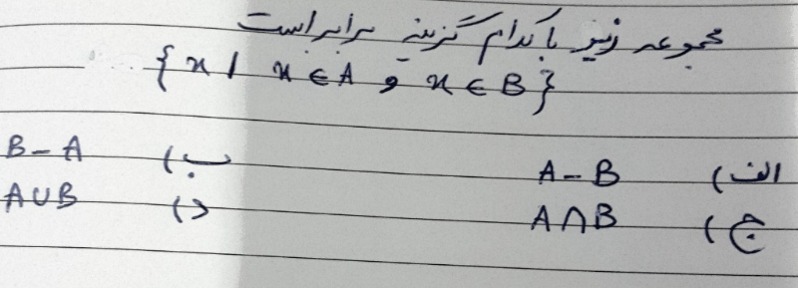 مجموعه زیر با کدام گزینه برابر است
{x | x ∈ A و x ∈ B}
الف) A - B ب) B - A
ج) A ∩ B د) A ∪ B